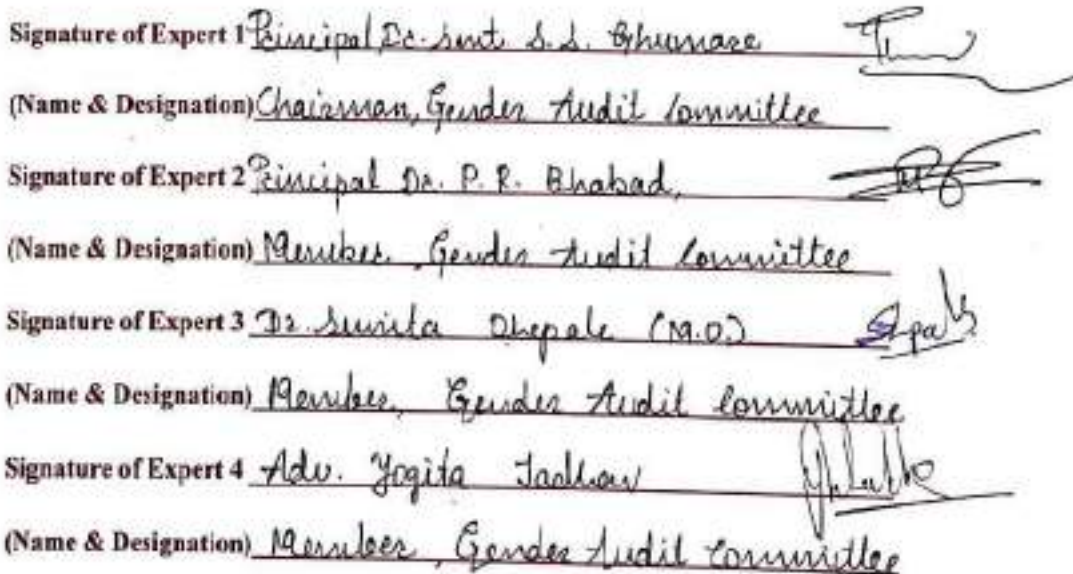 Signature of Expert 1 Principal Dr. Smt. S. S. Ghumare
(Name & Designation) Chairman, Gender Audit Committee
Signature of Expert 2 Principal Dr. P. R. Bhabad,
(Name & Designation) Member, Gender Audit Committee
Signature of Expert 3 Dr. Sunita Dhepale (M.O.)
(Name & Designation) Member, Gender Audit Committee
Signature of Expert 4 Adv. Yogita Jadhav
(Name & Designation) Member, Gender Audit Committee